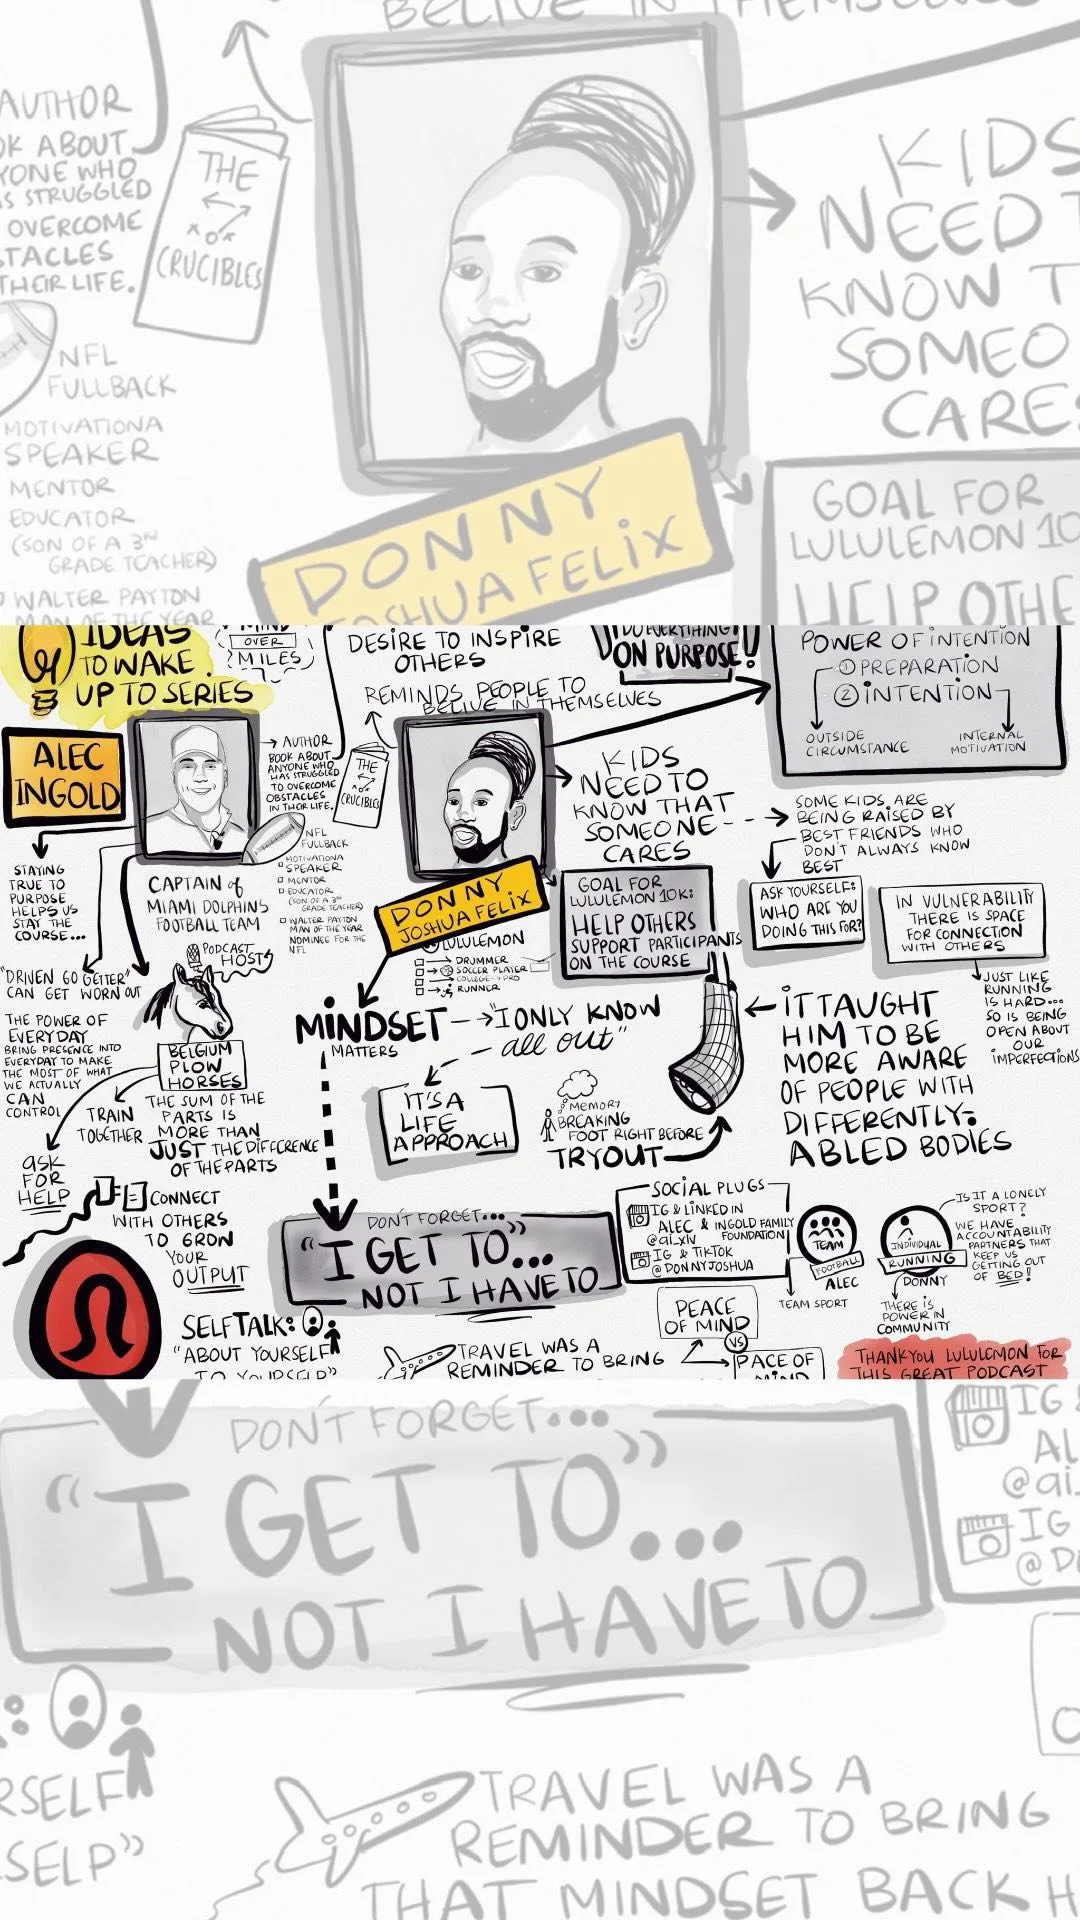 BELIVE IN THEMSELVES
AUTHOR
OK ABOUT
YONE WHO
S STRUGGLED
OVERCOME
STACLES
THEIR LIFE.
THE
CRUCIBLES
NFL
FULLBACK
MOTIVATIONA
SPEAKER
MENTOR
EDUCATOR
(SON OF A 3RD
GRADE TEACHER)
WALTER PAYTON
MAN OF THE YEAR
KIDS
NEED T
KNOW T
SOMEO
CARES
GOAL FOR
LULULEMON 10
HELP OTHE
DONNY
JOSHUA FELIX
IDEAS
TO WAKE
UP TO SERIES
MIND
OVER
MILES
DESIRE TO INSPIRE
OTHERS
REMINDS PEOPLE TO
BELIVE IN THEMSELVES
DO EVERYTHING
ON PURPOSE!
POWER OF INTENTION
① PREPARATION
② INTENTION
OUTSIDE
CIRCUMSTANCE
INTERNAL
MOTIVATION
ALEC
INGOLD
AUTHOR
BOOK ABOUT
ANYONE WHO
HAS STRUGGLED
TO OVERCOME
OBSTACLES
IN THEIR LIFE.
THE
CRUCIBLES
NFL
FULLBACK
MOTIVATIONA
SPEAKER
MENTOR
EDUCATOR
(SON OF A 3RD
GRADE TEACHER)
WALTER PAYTON
MAN OF THE YEAR
NOMINEE FOR THE
NFL
STAYING
TRUE TO
PURPOSE
HELPS US
STAY THE
COURSE...
CAPTAIN of
MIAMI DOLPHINS
FOOTBALL TEAM
PODCAST
HOSTS
DONNY
JOSHUA FELIX
LULULEMON
DRUMMER
SOCCER PLAYER
COLLEGE → PRO
RUNNER
KIDS
NEED TO
KNOW THAT
SOMEONE
CARES
GOAL FOR
LULULEMON 10K:
HELP OTHERS
SUPPORT PARTICIPANTS
ON THE COURSE
SOME KIDS ARE
BEING RAISED BY
BEST FRIENDS WHO
DON'T ALWAYS KNOW
BEST
ASK YOURSELF:
WHO ARE YOU
DOING THIS FOR?
IN VULNERABILITY
THERE IS SPACE
FOR CONNECTION
WITH OTHERS
JUST LIKE
RUNNING
IS HARD...
SO IS BEING
OPEN ABOUT
OUR
IMPERFECTIONS
"DRIVEN GO GETTER"
CAN GET WORN OUT
THE POWER OF
EVERYDAY
BRING PRESENCE INTO
EVERYDAY TO MAKE
THE MOST OF WHAT
WE ACTUALLY
CAN
CONTROL
BELGIUM
PLOW
HORSES
TRAIN
TOGETHER
THE SUM OF THE
PARTS IS
MORE THAN
JUST THE DIFFERENCE
OF THE PARTS
ask
FOR
HELP
CONNECT
WITH OTHERS
TO GROW
YOUR
OUTPUT
MINDSET
MATTERS
"I ONLY KNOW
all out"
IT'S A
LIFE
APPROACH
MEMORY
BREAKING
FOOT RIGHT BEFORE
TRYOUT
IT TAUGHT
HIM TO BE
MORE AWARE
OF PEOPLE WITH
DIFFERENTLY-
ABLED BODIES
DON'T FORGET...
"I GET TO"...
NOT I HAVE TO
SOCIAL PLUGS
IG & LINKED IN
ALEC & INGOLD FAMILY
@ai_xlv FOUNDATION
IG & TIKTOK
@DONNYJOSHUA
TEAM
FOOTBALL
ALEC
TEAM SPORT
INDIVIDUAL
RUNNING
DONNY
THERE IS
POWER IN
COMMUNITY
IS IT A LONELY
SPORT?
WE HAVE
ACCOUNTABILITY
PARTNERS THAT
KEEP US
GETTING OUT
OF BED!
SELF TALK:
"ABOUT YOURSELF
TO YOURSELF"
TRAVEL WAS A
REMINDER TO BRING
PEACE
OF MIND
VS
PACE OF
MIND
THANKYOU LULULEMON FOR
THIS GREAT PODCAST
DON'T FORGET...
"I GET TO"...
NOT I HAVE TO
IG &
AL
@ai_
IG
@DO
RSELF
SELF"
TRAVEL WAS A
REMINDER TO BRING
THAT MINDSET BACK H